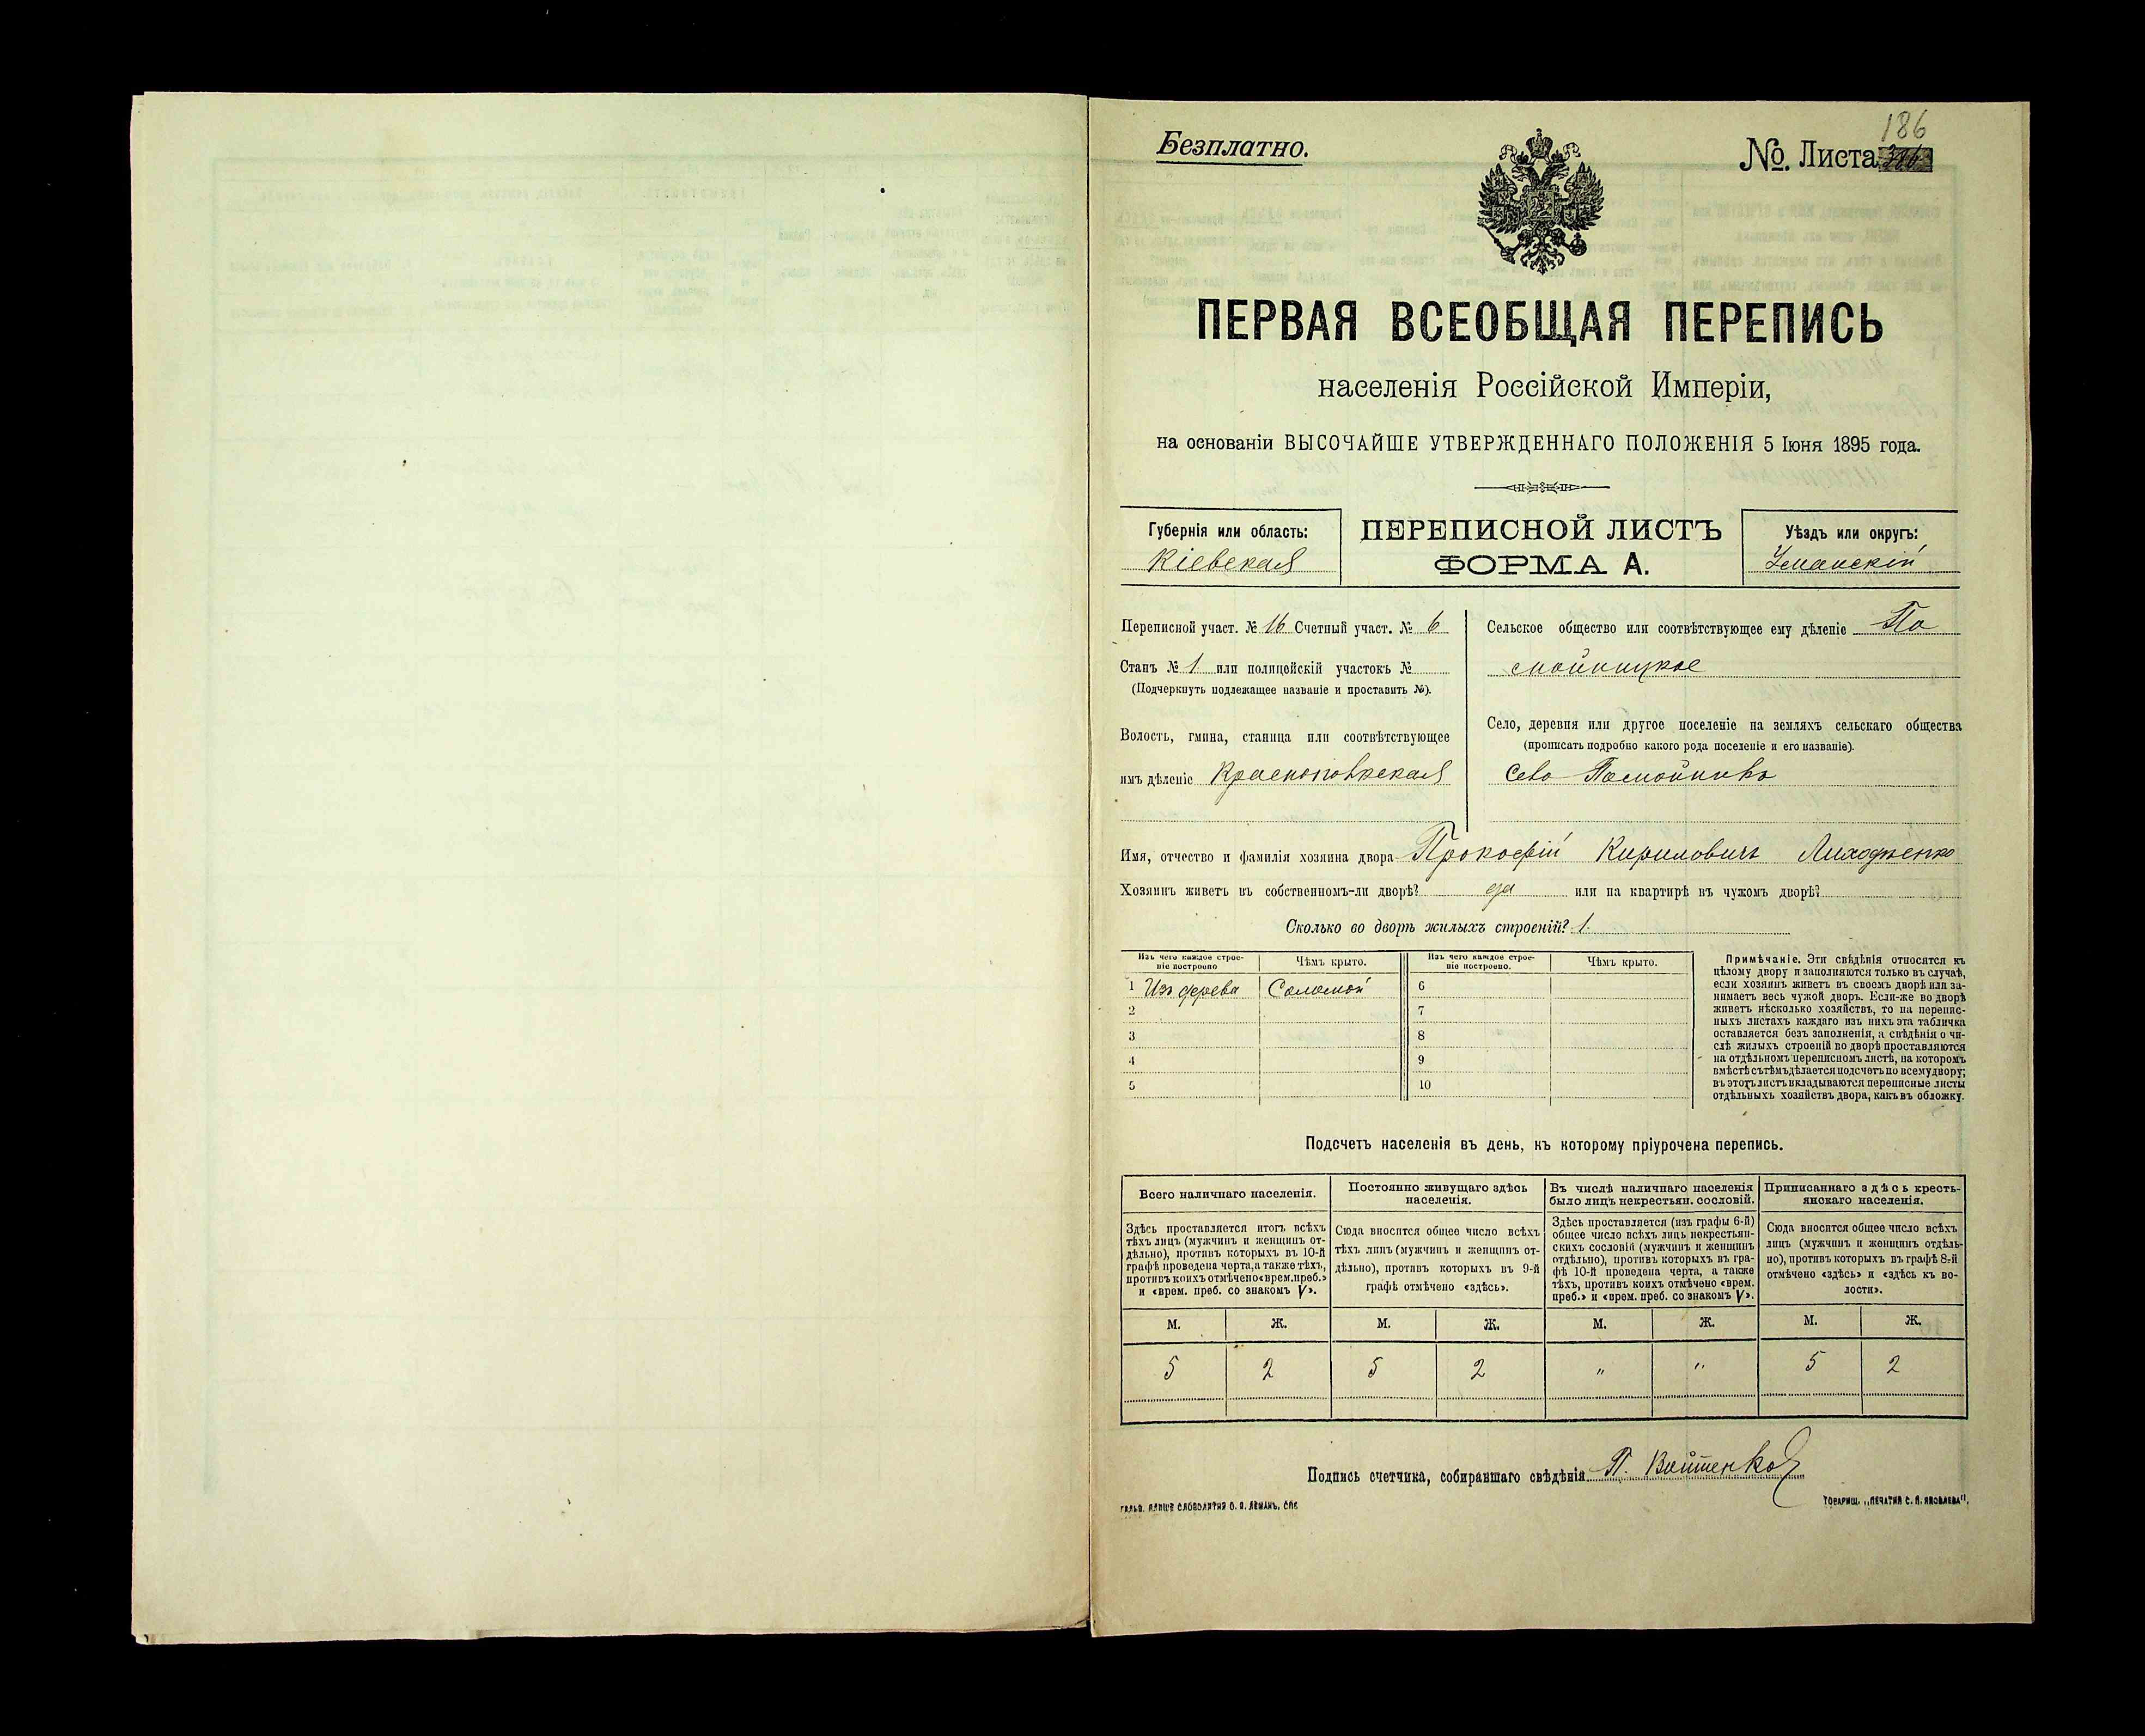 186
Безплатно.
№ Листа
ПЕРВАЯ ВСЕОБЩАЯ ПЕРЕПИСЬ
населенія Россійской Имперіи,
на основаніи ВЫСОЧАЙШЕ УТВЕРЖДЕННАГО ПОЛОЖЕНІЯ 5 Іюня 1895 года.
Губернія или область:
Кіевская
ПЕРЕПИСНОЙ ЛИСТЪ
ФОРМА А.
Уѣздъ или округъ:
Уманскій
Переписной участ. № 16 Счетный участ. № 6
Станъ № 1 или полицейскій участокъ №
(Подчеркнуть подлежащее названіе и проставить №).
Волость, гмина, станица или соотвѣтствующее
имъ дѣленіе Краснопольская
Сельское общество или соотвѣтствующее ему дѣленіе По
мойницкое
Село, деревня или другое поселеніе на земляхъ сельскаго общества
(прописать подробно какого рода поселеніе и его названіе).
Село Помойникъ
Имя, отчество и фамилія хозяина двора Прокофій Кириловичъ
Хозяинъ живетъ въ собственномъ-ли дворѣ? да или на квартирѣ въ чужомъ дворѣ?
Сколько во дворѣ жилыхъ строеній? 1.
Изъ чего каждое строе-
ніе построено
Чѣмъ крыто.
Изъ чего каждое строе-
ніе построено.
Чѣмъ крыто.
1 Изъ дерева Соломой 6
2 7
3 8
4 9
5 10
Примѣчаніе. Эти свѣдѣнія относятся къ
цѣлому двору и заполняются только въ случаѣ,
если хозяинъ живетъ въ своемъ дворѣ или за-
нимаетъ весь чужой дворъ. Если-же во дворѣ
живетъ нѣсколько хозяйствъ, то на перепис-
ныхъ листахъ каждаго изъ нихъ эта табличка
оставляется безъ заполненія, а свѣдѣнія о чи-
слѣ жилыхъ строеній во дворѣ проставляются
на отдѣльномъ переписномъ листѣ, на которомъ
вмѣстѣ съ тѣмъ дѣлается подсчетъ по всему двору;
въ этотъ листъ вкладываются переписные листы
отдѣльныхъ хозяйствъ двора, какъ въ обложку.
Подсчетъ населенія въ день, къ которому пріурочена перепись.
Всего наличнаго населенія.
Здѣсь проставляется итогъ всѣхъ
тѣхъ лицъ (мужчинъ и женщинъ от-
дѣльно), противъ которыхъ въ 10-й
графѣ проведена черта, а также тѣхъ,
противъ коихъ отмѣчено «врем. преб.»
и «врем. преб. со знакомъ V».
Постоянно живущаго здѣсь
населенія.
Сюда вносится общее число всѣхъ
тѣхъ лицъ (мужчинъ и женщинъ от-
дѣльно), противъ которыхъ въ 9-й
графѣ отмѣчено «здѣсь».
Въ числѣ наличнаго населенія
было лицъ некрестьян. сословій.
Здѣсь проставляется (изъ графы 6-й)
общее число всѣхъ лицъ некрестьян-
скихъ сословій (мужчинъ и женщинъ
отдѣльно), противъ которыхъ въ гра-
фѣ 10-й проведена черта, а также
тѣхъ, противъ коихъ отмѣчено «врем.
преб.» и «врем. преб. со знакомъ V».
Приписаннаго здѣсь кресть-
янскаго населенія.
Сюда вносится общее число всѣхъ
лицъ (мужчинъ и женщинъ отдѣль-
но), противъ которыхъ въ графѣ 8-й
отмѣчено «здѣсь» и «здѣсь къ во-
лости».
М. Ж. М. Ж. М. Ж. М. Ж.
5 2 5 2 " " 5 2
Подпись счетчика, собиравшаго свѣдѣнія П. Войтенко
ГАЛЬВ. КЛИШЕ СЛОВОЛИТНЯ О. И. ЛЕМАНЪ, СПБ
ТОВАРИЩ. „ПЕЧАТНЯ С. П. ЯКОВЛЕВА".